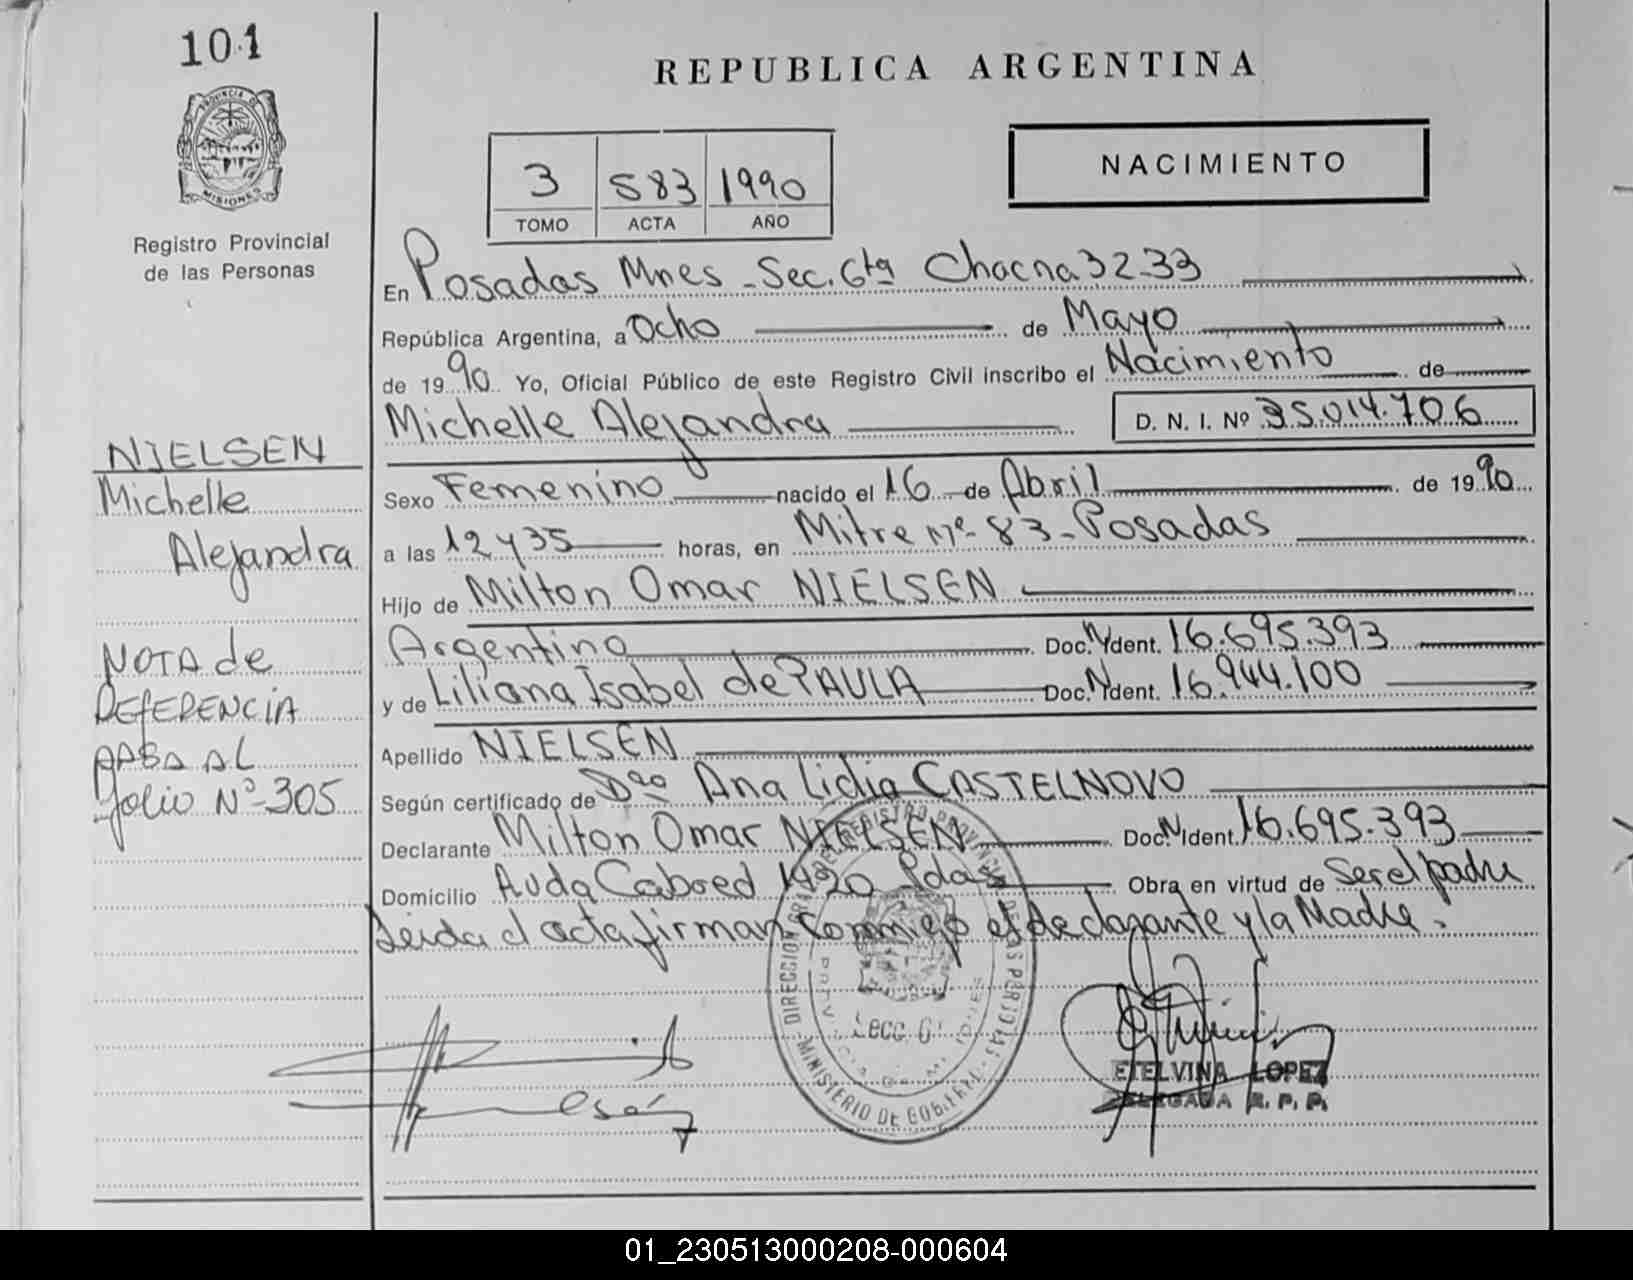 101
PROVINCIA DE
MISIONES
Registro Provincial
de las Personas
REPUBLICA ARGENTINA
3 583 1990
TOMO ACTA AÑO
NACIMIENTO
En Posadas Mnes - Sec. 6ta Chacna 32-33
República Argentina, a Ocho de Mayo
de 1990 Yo, Oficial Público de este Registro Civil inscribo el Nacimiento de
Michelle Alejandra D. N. I. Nº 35.014.706
Sexo Femenino nacido el 16 de Abril de 1990
a las 12 y 35 horas, en Mitre Nº 83 - Posadas
Hijo de Milton Omar NIELSEN
Argentino Doc. N Ident. 16.695.393
y de Liliana Isabel de PAULA Doc. N Ident. 16.944.100
Apellido NIELSEN
Según certificado de Dra Ana Lidia CASTELNOVO
Declarante Milton Omar NIELSEN Doc. N Ident. 16.695.393
Domicilio Avda Cabred 1920 Pdas Obra en virtud de Ser el padre
Leida el acta firman conmigo el declarante y la Madre.
NIELSEN
Michelle
Alejandra
NOTA de
REFERENCIA
PASA AL
folio Nº 305
DIRECCION GRAL. DE REGISTRO PROVINCIAL DE LAS PERSONAS
MINISTERIO DE GOBIERNO
Secc. 6
ETELVINA LOPEZ
DELEGADA R. P. P.
01_230513000208-000604